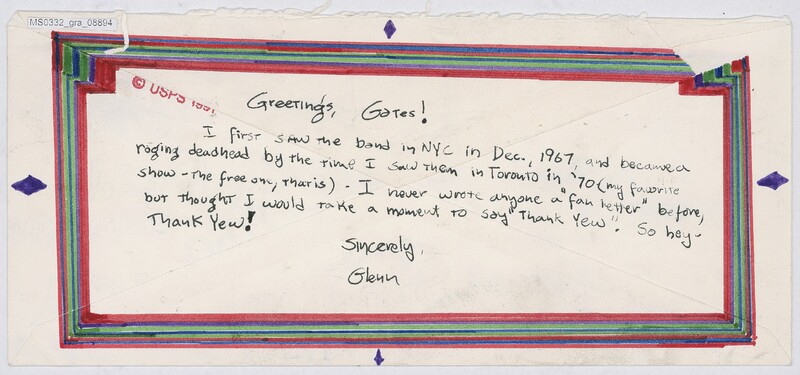 MS0332_gra_08894
© USPS 1991
Greetings, Gates!
I first saw the band in NYC in Dec., 1967, and became a
raging deadhead by the time I saw them in Toronto in '70 (my favorite
show - the free one, that is). I never wrote anyone a "fan letter" before,
but thought I would take a moment to say "Thank Yew". So hey-
Thank Yew!
Sincerely,
Glenn